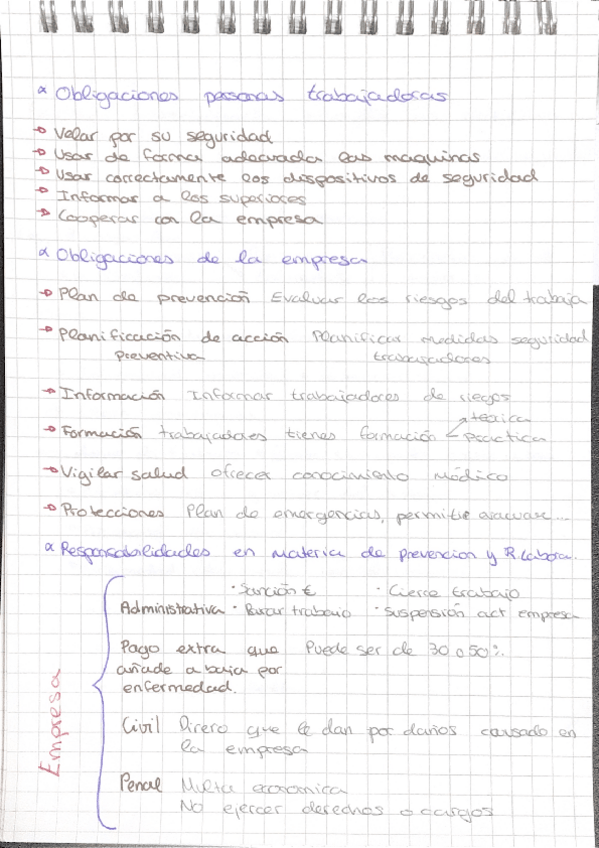 Obligaciones personas trabajadoras
Velar por su seguridad
Usar de forma adecuada las maquinas
Usar correctamente los dispositivos de seguridad
Informar a los superiores
Cooperar con la empresa
Obligaciones de la empresa
Plan de prevención Evaluar los riesgos del trabaja
Planificación de acción Planificar medidas seguridad
preventiva trabajadores
Información Informar trabajadores de riegos
teorica
Formación trabajadores tienes formación practica
Vigilar salud ofrecer conocimiento médico
Protecciones Plan de emergencias, permitir evacuar...
Responsabilidades en materia de prevencion y R. Labora.
· Sanción € · Cierre trabajo
Administrativa · Parar trabajo · Suspensión act empresa
Pago extra que Puede ser de 30 o 50%.
añade a baja por
enfermedad.
Empresa
Civil Dinero que le dan por daños causado en
la empresa
Penal Multa economica
No ejercer derechos o cargos